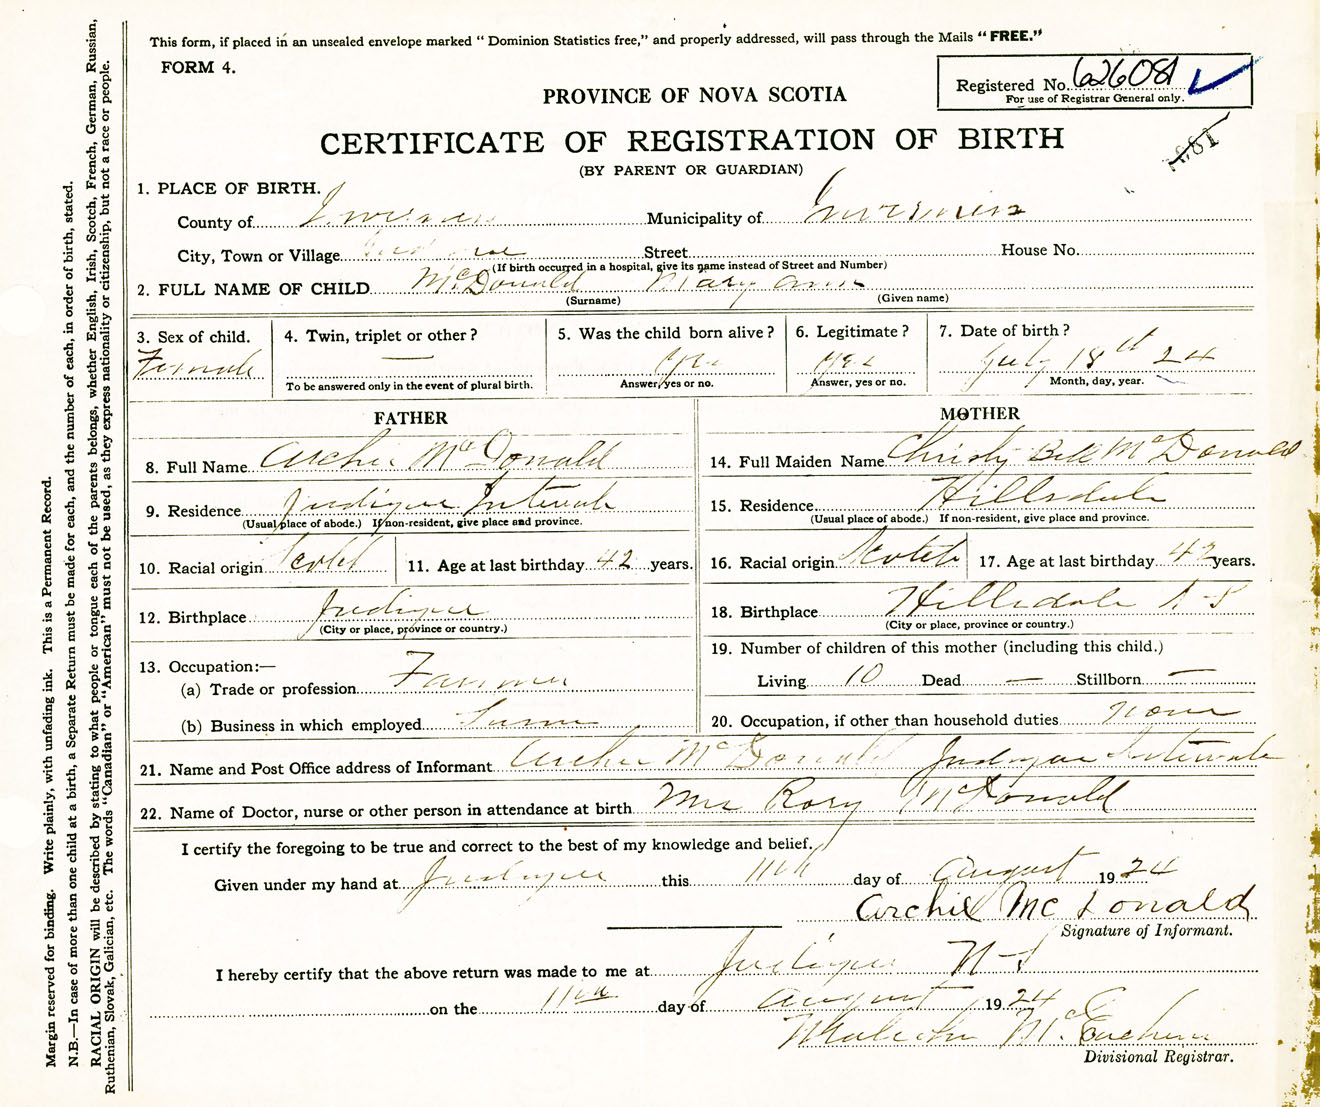 This form, if placed in an unsealed envelope marked "Dominion Statistics free," and properly addressed, will pass through the Mails "FREE."
FORM 4.
Registered No. 626081
For use of Registrar General only.
PROVINCE OF NOVA SCOTIA
CERTIFICATE OF REGISTRATION OF BIRTH
(BY PARENT OR GUARDIAN)
1. PLACE OF BIRTH.
County of Inverness Municipality of Inverness
City, Town or Village Judique Street House No.
(If birth occurred in a hospital, give its name instead of Street and Number)
2. FULL NAME OF CHILD McDonald Mary Ann
(Surname) (Given name)
3. Sex of child. 4. Twin, triplet or other? 5. Was the child born alive? 6. Legitimate? 7. Date of birth?
Female — Yes Yes July 18th 24
To be answered only in the event of plural birth. Answer, yes or no. Answer, yes or no. Month, day, year.
FATHER
8. Full Name Archie McDonald
9. Residence Judique Intervale
(Usual place of abode.) If non-resident, give place and province.
10. Racial origin Scotch 11. Age at last birthday 42 years.
12. Birthplace Judique
(City or place, province or country.)
13. Occupation:—
(a) Trade or profession Farmer
(b) Business in which employed
MOTHER
14. Full Maiden Name Christy Bell McDonald
15. Residence Hillsdale
(Usual place of abode.) If non-resident, give place and province.
16. Racial origin Scotch 17. Age at last birthday 42 years.
18. Birthplace Hillsdale N-S
(City or place, province or country.)
19. Number of children of this mother (including this child.)
Living 10 Dead — Stillborn —
20. Occupation, if other than household duties none
21. Name and Post Office address of Informant Archie McDonald Judique Intervale
22. Name of Doctor, nurse or other person in attendance at birth Mrs Rory McDonald
I certify the foregoing to be true and correct to the best of my knowledge and belief.
Given under my hand at Judique this 11th day of August 1924
Archie McDonald
Signature of Informant.
I hereby certify that the above return was made to me at Judique N-S
on the 11th day of August 1924
Malcolm McEachern
Divisional Registrar.
Margin reserved for binding. Write plainly, with unfading ink. This is a Permanent Record.
N.B.—In case of more than one child at a birth, a Separate Return must be made for each, and the number of each, in order of birth, stated.
RACIAL ORIGIN will be described by stating to what people or tongue each of the parents belongs, whether English, Irish, Scotch, French, German, Russian,
Ruthenian, Slovak, Galician, etc. The words "Canadian" or "American" must not be used, as they express nationality or citizenship, but not a race or people.